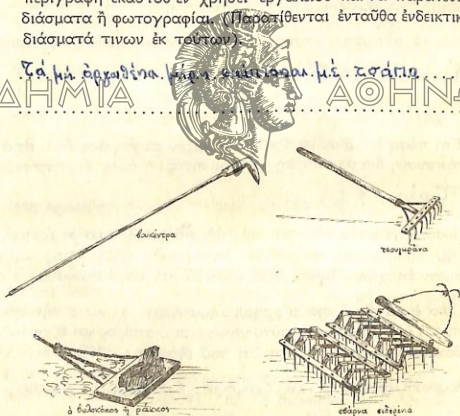 περιγραφὴ ἑκάστου ἐν χρήσει ἐργαλείου καὶ νὰ
διάσματα ἢ φωτογραφίαι. (Παρατίθενται ἐνταῦθα ἐνδεικτικ
διάσματά τινων ἐκ τούτων).
Τὰ μὴ ὀργωθέντα μέρη σκάπτονται μὲ τσάπα
ΔΗΜΙΑ ΑΘΗΝ
βουκέντρα
τσουγκράνα
ὁ βωλοκόπος ἢ ράκκος
σβάρνα σιδερένια